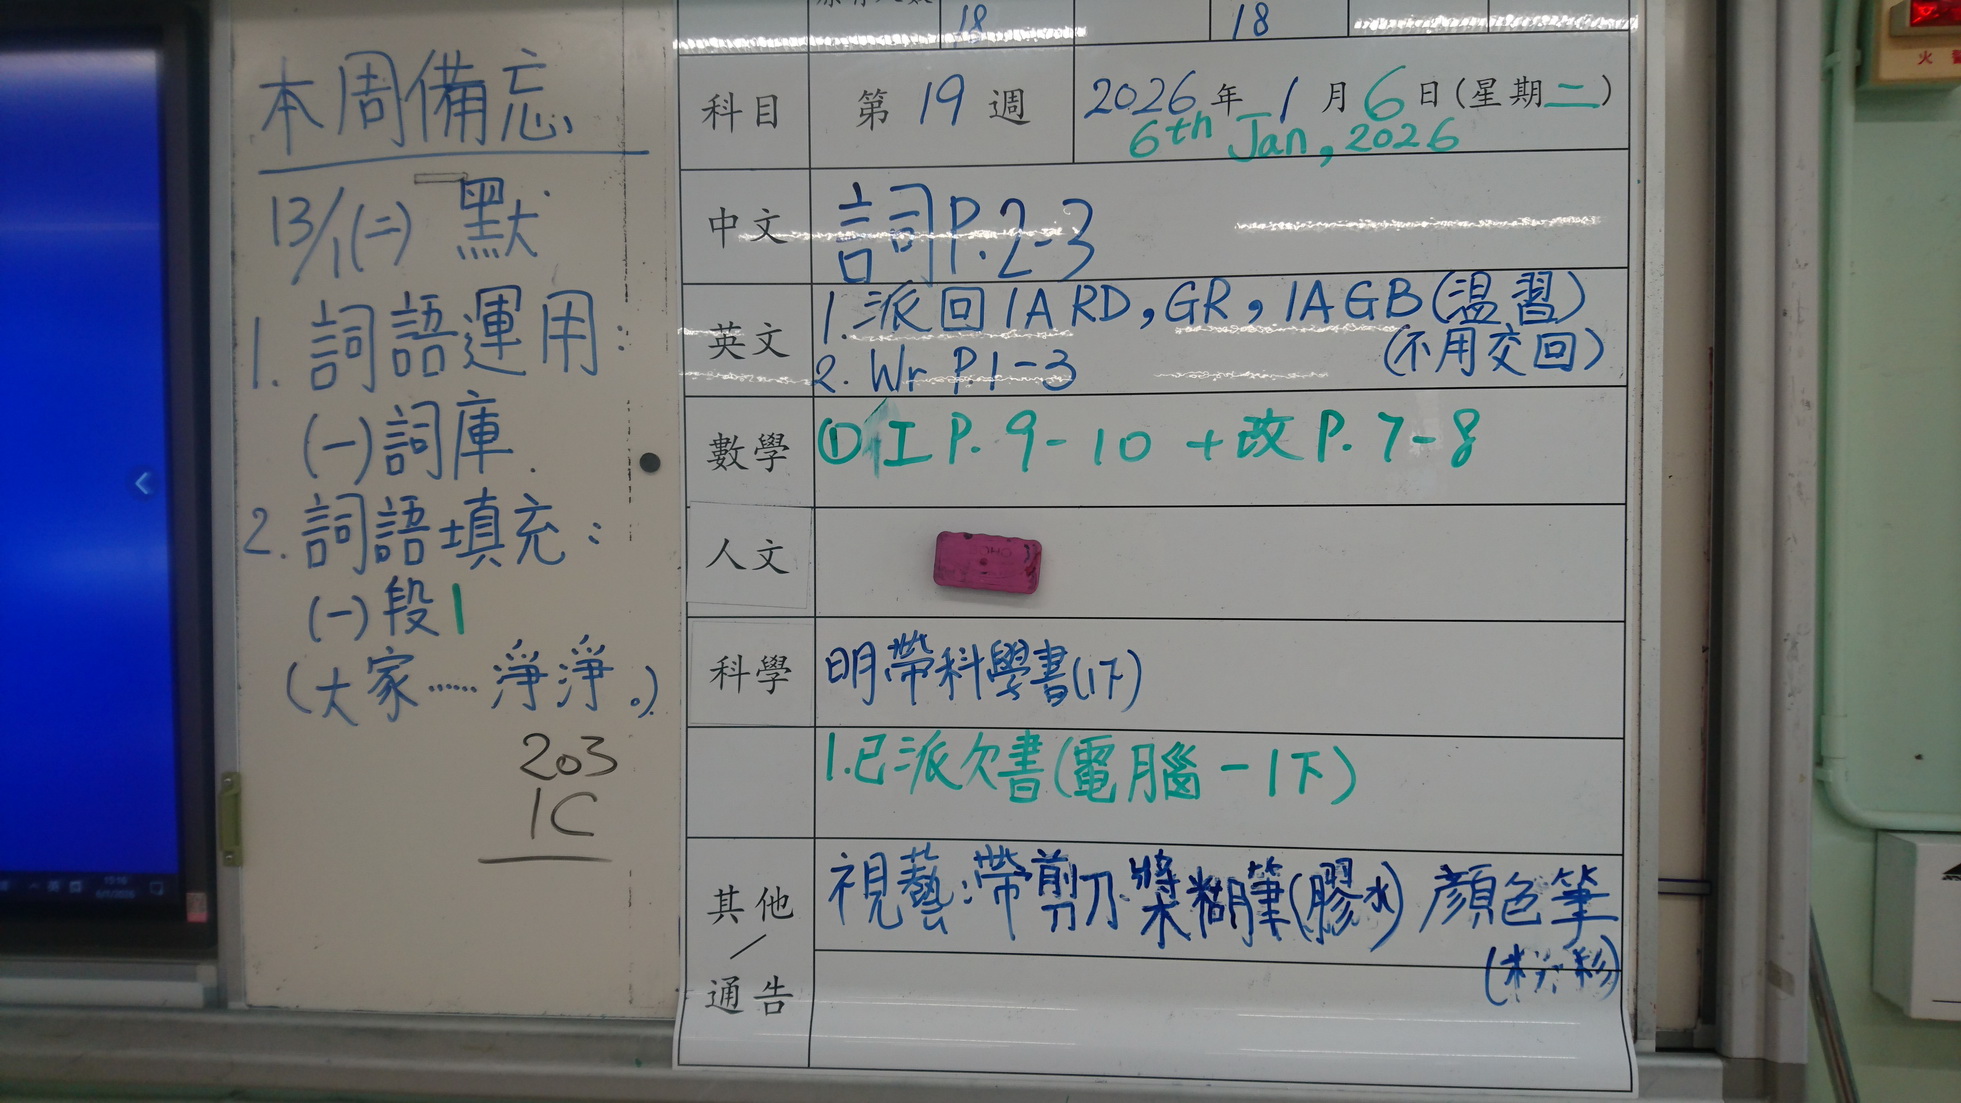 本周備忘
13/1(二) 默
1. 詞語運用：
(一)詞庫
2. 詞語填充：
(一)段1
(大家......淨淨。)
203
1C
18 18
科目 第19週 2026年1月6日(星期二)
6th Jan, 2026
中文 詞P.2-3
英文 1.派回1A RD, GR, 1A GB(温習)
(不用交回)
2. Wr P.1-3
數學 ①工 P.9-10 +改 P.7-8
人文
科學 明帶科學書(1下)
1.已派欠書(電腦-1下)
其他/通告 視藝:帶剪刀.漿糊筆(膠水) 顏色筆
(粉彩)
火